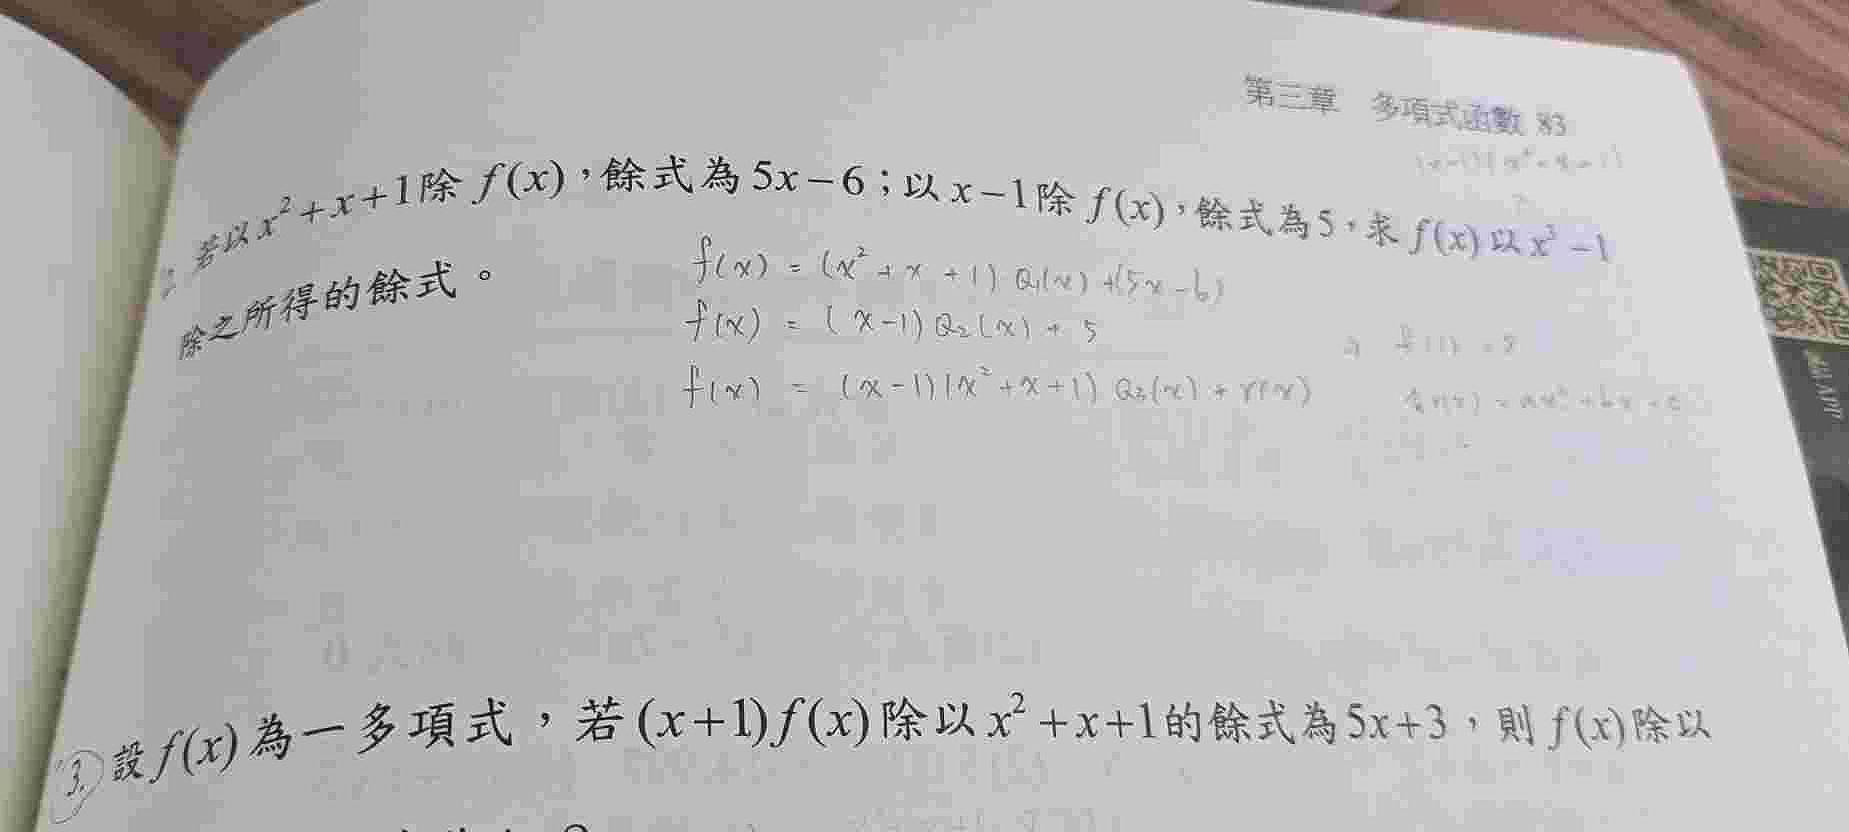 第三章 多項式函數 83
2. 若以 x²+x+1除 f(x)，餘式為5x-6；以 x-1除 f(x)，餘式為5，求 f(x)以 x³-1
除之所得的餘式。
f(x) = (x²+x+1) Q₁(x) +(5x-6)
f(x) = (x-1) Q₂(x) + 5
f(x) = (x-1)(x²+x+1) Q₃(x) + r(x)
3. 設 f(x)為一多項式，若(x+1)f(x)除以 x²+x+1的餘式為5x+3，則 f(x)除以